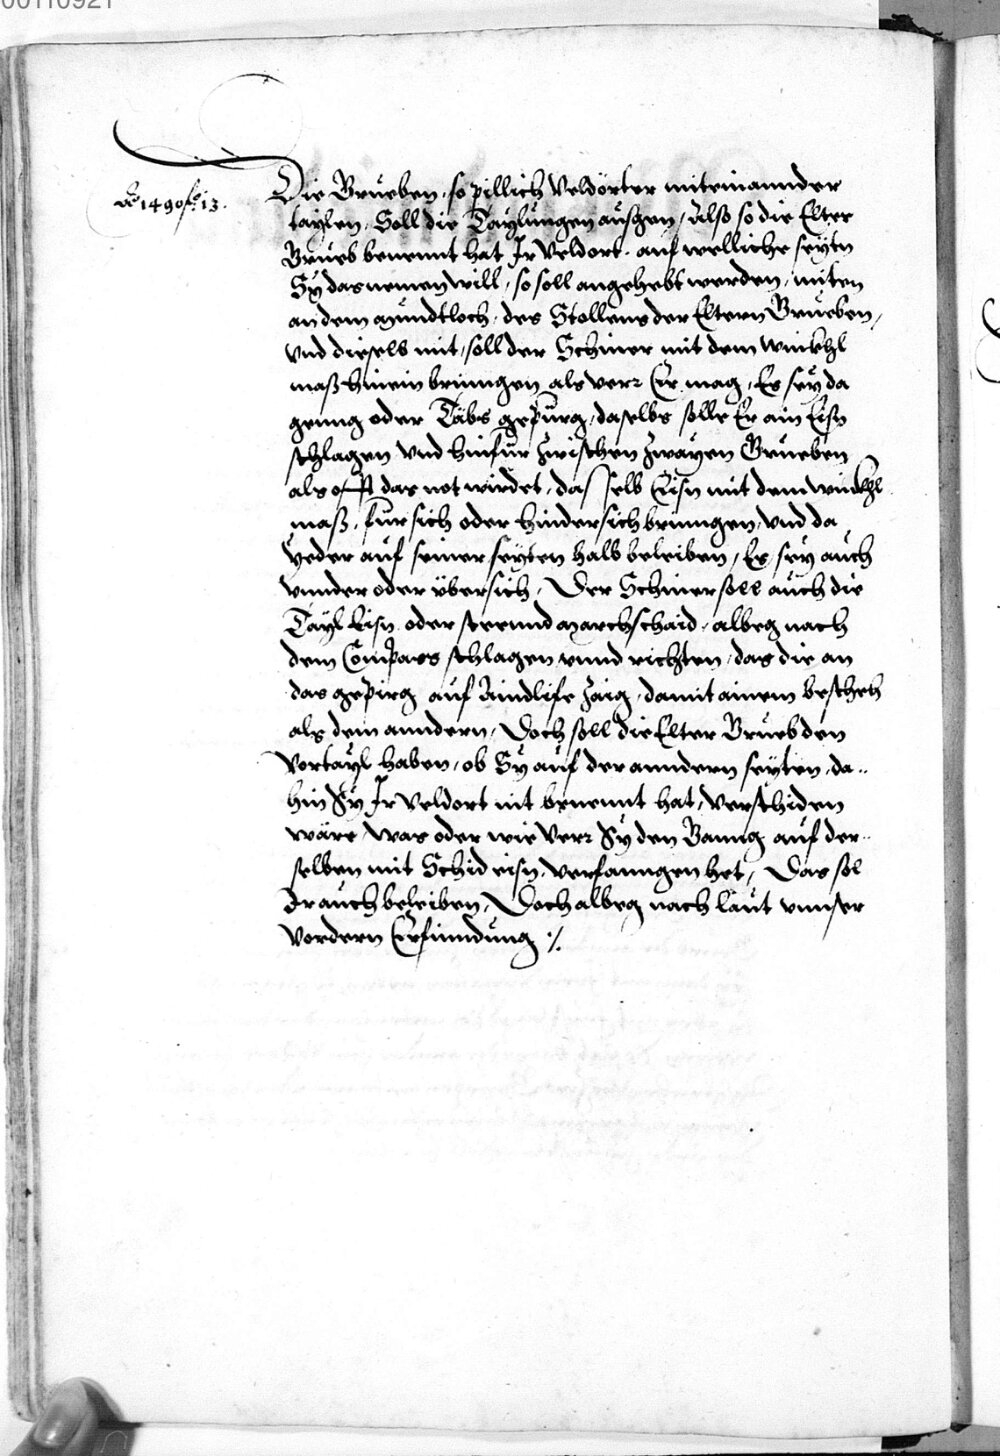 00110921
Ao 1490 fo: 13.
Die Grueben, so pillich Veldörter miteinannder
taylen, Soll die Taylungen ausgen, Also so die Elter
Grueb benennt hat Ir Veldort, auf welliche seytn
Sy das nemen will, so soll angehebt werden, miten
an dem mundtloch, des Stollens der Eltern Grueben,
Vnd dieselb mit, soll der Schiner mit dem winckhl
mass hinein bringen als verr Er mag, Es sey da
genng oder Täbs gepürg, daselbs solle Er ain Eisn
schlagen Vnd hinfür zwischen zwayen Grueben
als offt das not wirdet, das selb Eisn mit dem winckhl
mass, für sich oder hindersich bringen, Vnd da
Yeder auf seiner seyten halb beleiben, Es sey auch
vnnder oder übersich, Der Schiner soll auch die
Tayl Eisn oder steen und marchschaid, albeg nach
dem Compass schlagen vnnd richten, das die an
das gepirg auf zaig, damit ainem beschech
als dem anndern, Doch soll die Elter Grueb den
Vortayl haben, ob Sy auf der anndern seyten, da-
hin Sy Ir Veldort nit benennt hat, verschiden
wäre, was oder wie verr Sy den Ganng auf der-
selben mit Schid eisn, verfanngen het, Das sol
Ir auch beleiben, Doch albeg nach laut vnnser
Vordern Erfindung ·/.